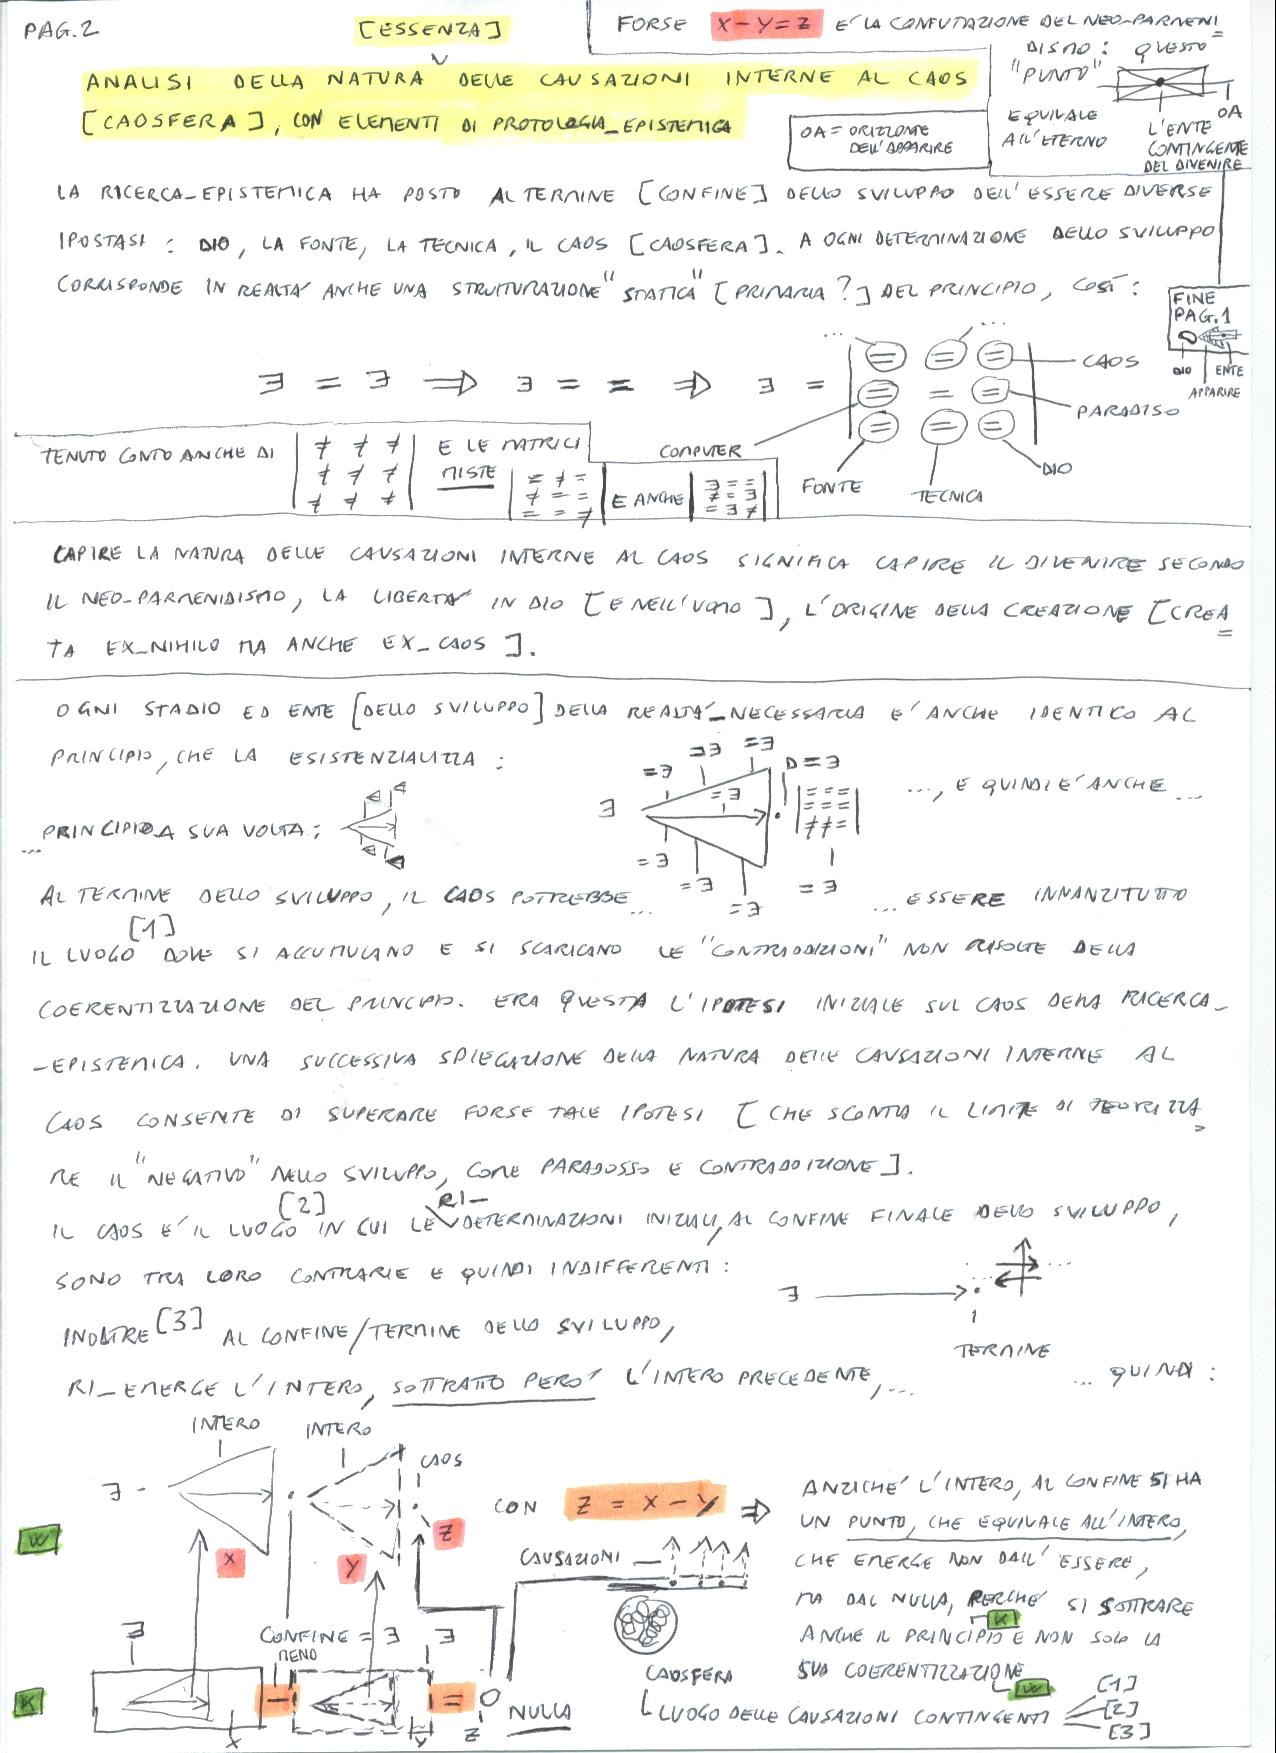 PAG.2
[ESSENZA]
FORSE X-Y=Z E' LA CONFUTAZIONE DEL NEO-PARMENI=
DISMO: QUESTO
"PUNTO"
EQUIVALE
ALL'ETERNO
OA
L'ENTE
CONTINGENTE
DEL DIVENIRE
ANALISI DELLA NATURA DELLE CAUSAZIONI INTERNE AL CAOS
[CAOSFERA], CON ELEMENTI DI PROTOLOGIA_EPISTEMICA
OA = ORIZZONTE
DELL'APPARIRE
LA RICERCA_EPISTEMICA HA POSTO AL TERMINE [CONFINE] DELLO SVILUPPO DELL'ESSERE DIVERSE
IPOSTASI: DIO, LA FONTE, LA TECNICA, IL CAOS [CAOSFERA]. A OGNI DETERMINAZIONE DELLO SVILUPPO
CORRISPONDE IN REALTA' ANCHE UNA STRUTTURAZIONE "STATICA" [PRIMARIA?] DEL PRINCIPIO, COSÌ:
FINE
PAG.1
DIO
ENTE
APPARIRE
∃ = ∃ ⇒ ∃ = = ⇒ ∃ =
... ...
= = =
= = =
= = =
CAOS
PARADISO
DIO
TECNICA
FONTE
COMPUTER
TENUTO CONTO ANCHE DI
≠ ≠ ≠
≠ ≠ ≠
≠ ≠ ≠
E LE MATRICI
MISTE
= ≠ =
≠ = =
= = ≠
E ANCHE
∃ = =
≠ = ∃
= ∃ ≠
CAPIRE LA NATURA DELLE CAUSAZIONI INTERNE AL CAOS SIGNIFICA CAPIRE IL DIVENIRE SECONDO
IL NEO-PARMENIDISMO, LA LIBERTA' IN DIO [E NELL'UOMO], L'ORIGINE DELLA CREAZIONE [CREA=
TA EX_NIHILO MA ANCHE EX_CAOS].
OGNI STADIO ED ENTE [DELLO SVILUPPO] DELLA REALTA'_NECESSARIA E' ANCHE IDENTICO AL
PRINCIPIO, CHE LA ESISTENZIALIZZA:
∃
=∃ =∃ =∃ D=∃
=∃
= = =
= = =
≠ ≠ =
=∃ =∃ =∃ =∃
..., E QUINDI E' ANCHE ...
... PRINCIPIO A SUA VOLTA:
AL TERMINE DELLO SVILUPPO, IL CAOS POTREBBE ... ... ESSERE INNANZITUTTO
[1]
IL LUOGO DOVE SI ACCUMULANO E SI SCARICANO LE "CONTRADDIZIONI" NON RISOLTE DELLA
COERENTIZZAZIONE DEL PRINCIPIO. ERA QUESTA L'IPOTESI INIZIALE SUL CAOS DELLA RICERCA_
_EPISTEMICA. UNA SUCCESSIVA SPIEGAZIONE DELLA NATURA DELLE CAUSAZIONI INTERNE AL
CAOS CONSENTE DI SUPERARE FORSE TALE IPOTESI [CHE SCONTA IL LIMITE DI TEORIZZA=
RE IL "NEGATIVO" NELLO SVILUPPO, COME PARADOSSO E CONTRADDIZIONE].
[2] RI-
IL CAOS E' IL LUOGO IN CUI LE DETERMINAZIONI INIZIALI, AL CONFINE FINALE DELLO SVILUPPO,
SONO TRA LORO CONTRARIE E QUINDI INDIFFERENTI:
∃
TERMINE
INOLTRE [3] AL CONFINE/TERMINE DELLO SVILUPPO,
RI_EMERGE L'INTERO, SOTTRATTO PERO' L'INTERO PRECEDENTE, ... ... QUINDI:
INTERO
INTERO
CAOS
∃
X
Y
Z
CON Z = X - Y ⇒
W
CAUSAZIONI
ANZICHE' L'INTERO, AL CONFINE SI HA
UN PUNTO, CHE EQUIVALE ALL'INTERO,
CHE EMERGE NON DALL'ESSERE,
MA DAL NULLA, PERCHE' SI SOTTRAE
K
ANCHE IL PRINCIPIO E NON SOLO LA
SUA COERENTIZZAZIONE
W
∃
CONFINE = ∃
∃
MENO
K
X
-
Y
=
O
Z
NULLA
CAOSFERA
LUOGO DELLE CAUSAZIONI CONTINGENTI
[1]
[2]
[3]